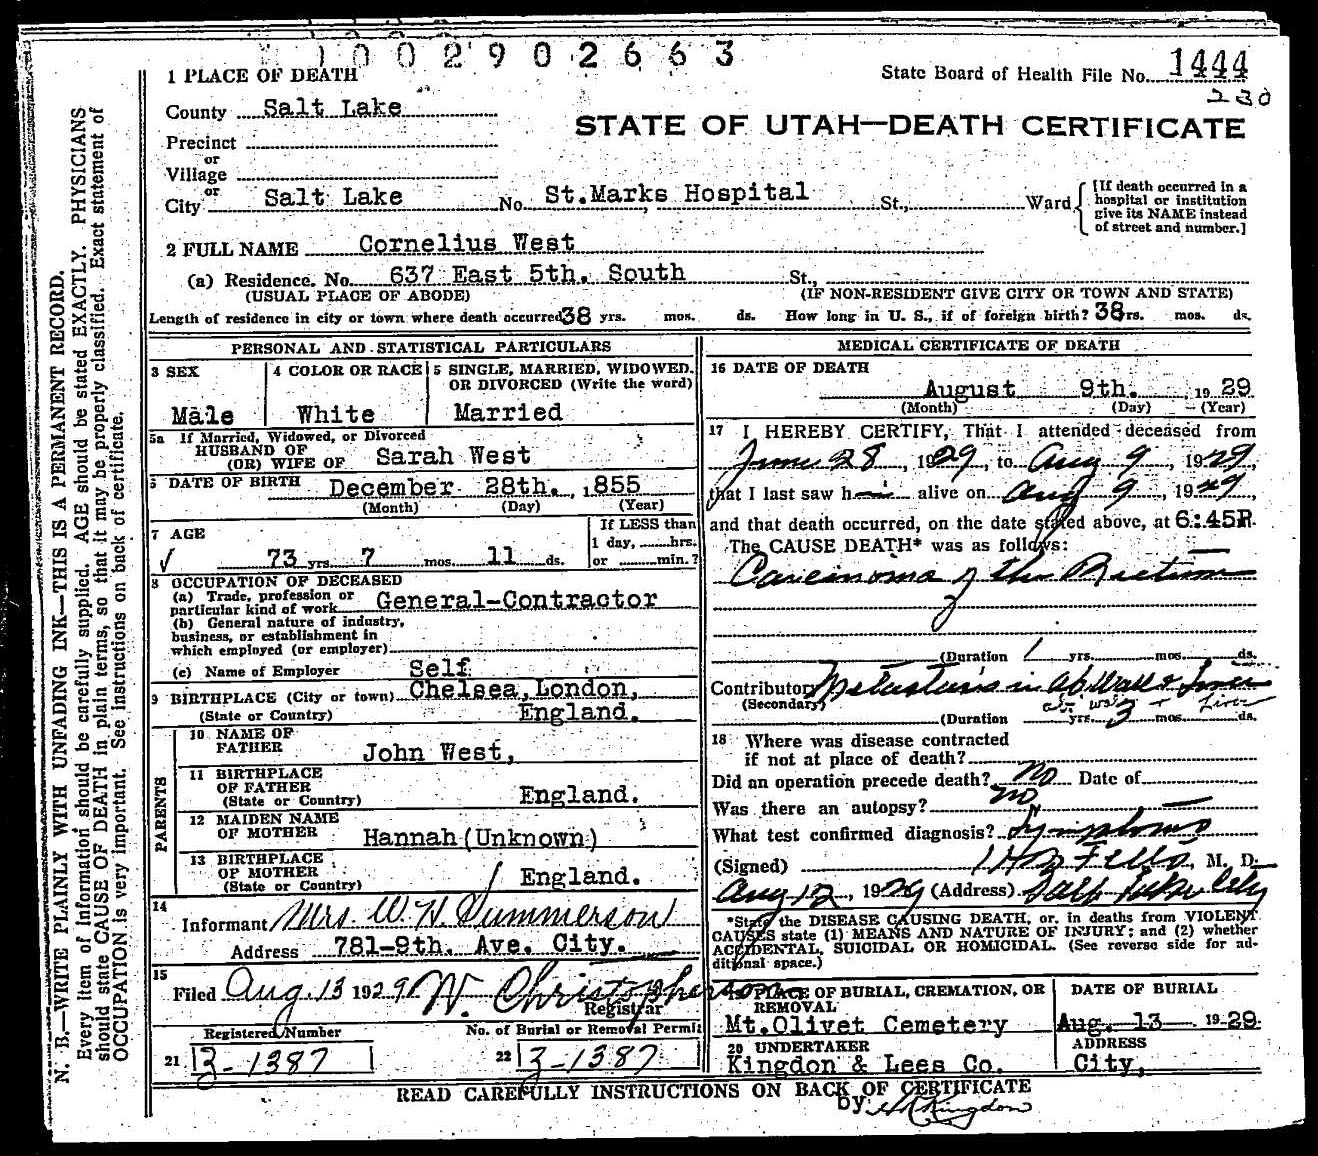 1002902663
1 PLACE OF DEATH
State Board of Health File No. 1444
230
County Salt Lake
STATE OF UTAH—DEATH CERTIFICATE
Precinct
or
Village
or
City Salt Lake No. St.Marks Hospital St., Ward
[If death occurred in a hospital or institution give its NAME instead of street and number.]
2 FULL NAME Cornelius West
(a) Residence. No. 637 East 5th. South St.,
(USUAL PLACE OF ABODE) (IF NON-RESIDENT GIVE CITY OR TOWN AND STATE)
Length of residence in city or town where death occurred 38 yrs. mos. ds. How long in U. S., if of foreign birth? 38 rs. mos. ds.
PERSONAL AND STATISTICAL PARTICULARS
3 SEX
Male
4 COLOR OR RACE
White
5 SINGLE, MARRIED, WIDOWED,
OR DIVORCED (Write the word)
Married
5a If Married, Widowed, or Divorced
HUSBAND OF
(OR) WIFE OF Sarah West
6 DATE OF BIRTH December 28th., 1855
(Month) (Day) (Year)
7 AGE
√ 73 yrs. 7 mos. 11 ds.
If LESS than
1 day, hrs.
or min.?
8 OCCUPATION OF DECEASED
(a) Trade, profession or
particular kind of work General-Contractor
(b) General nature of industry,
business, or establishment in
which employed (or employer)
(c) Name of Employer Self
9 BIRTHPLACE (City or town) Chelsea, London,
(State or Country) England.
PARENTS
10 NAME OF
FATHER John West,
11 BIRTHPLACE
OF FATHER
(State or Country) England.
12 MAIDEN NAME
OF MOTHER Hannah (Unknown)
13 BIRTHPLACE
OF MOTHER
(State or Country) England.
14
Informant Mrs. W. H. Summerson
Address 781-9th. Ave. City.
15
Filed Aug. 13 1929 W. Christopherson
Registrar
Registered Number
21 3-1387
No. of Burial or Removal Permit
22 3-1387
MEDICAL CERTIFICATE OF DEATH
16 DATE OF DEATH
August 9th. 1929
(Month) (Day) (Year)
17 I HEREBY CERTIFY, That I attended deceased from
June 28, 1929, to Aug 9, 1929,
that I last saw h im alive on Aug 9, 1929,
and that death occurred, on the date stated above, at 6:45P.
The CAUSE DEATH* was as follows:
Carcinoma of the Rectum
(Duration 1 yrs. mos. ds.
Contributory Metastasis in Ab Wall & Liver
(Secondary) ab. wall + Liver
(Duration yrs. 3 mos. ds.
18 Where was disease contracted
if not at place of death?
Did an operation precede death? No Date of
Was there an autopsy? No
What test confirmed diagnosis? Symptoms
(Signed) Fells, M. D.
Aug 12, 1929 (Address) Salt Lake City
*State the DISEASE CAUSING DEATH, or, in deaths from VIOLENT
CAUSES state (1) MEANS AND NATURE OF INJURY; and (2) whether
ACCIDENTAL, SUICIDAL OR HOMICIDAL. (See reverse side for ad-
ditional space.)
PLACE OF BURIAL, CREMATION, OR
REMOVAL
Mt.Olivet Cemetery
DATE OF BURIAL
Aug. 13 1929
20 UNDERTAKER
Kingdon & Lees Co.
ADDRESS
City,
READ CAREFULLY INSTRUCTIONS ON BACK OF CERTIFICATE
by Kingdon
N. B.—WRITE PLAINLY WITH UNFADING INK—THIS IS A PERMANENT RECORD.
Every item of information should be carefully supplied. AGE should be stated EXACTLY. PHYSICIANS
should state CAUSE OF DEATH in plain terms, so that it may be properly classified. Exact statement of
OCCUPATION is very important. See instructions on back of certificate.